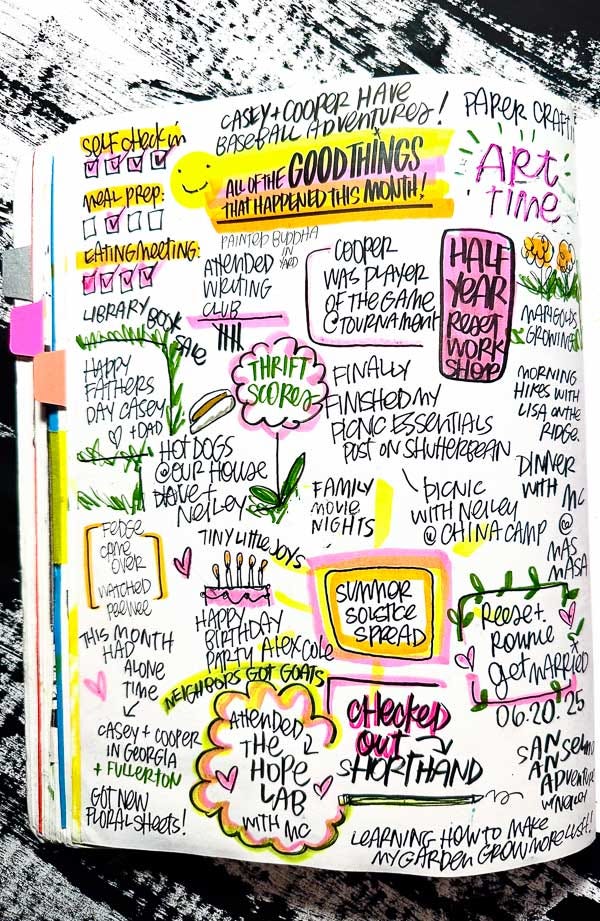 CASEY + COOPER HAVE
BASEBALL ADVENTURES!
PAPER CRAFTIN
SELF CHECK in
MEAL PREP:
EATING MEETING:
ALL OF THE GOOD THINGS
THAT HAPPENED THIS MONTH!
ART
TIME
PAINTED BUDDHA
IN
YARD
ATTENDED
WRITING
CLUB
COOPER
WAS PLAYER
OF THE GAME
@ TOURNAMENT
HALF
YEAR
RESET
WORK
SHOP
MARIGOLDS
GROWING
LIBRARY BOOK
SALE
HAPPY
FATHERS
DAY CASEY
+ DAD
THRIFT
SCORES
FINALLY
FINISHED MY
PICNIC ESSENTIALS
POST ON SHUTTERBEAN
MORNING
HIKES WITH
LISA ON THE
RIDGE.
HOT DOGS
@ OUR HOUSE
DAVE +
NEILEY
FAMILY
MOVIE
NIGHTS
PICNIC
WITH NEILEY
@ CHINA CAMP
DINNER
WITH MC
@
MAS
MASA
CAME
OVER
WATCHED
PEEWEE
TINY LITTLE JOYS
SUMMER
SOLSTICE
SPREAD
HAPPY
BIRTHDAY
PARTY ALEX COLE
REESE +
RONNIE
GET MARRIED
06.20.25
THIS MONTH
HAD
ALONE
TIME
CASEY + COOPER
IN GEORGIA
+ FULLERTON
GOT NEW
FLORAL SHEETS!
NEIGHBORS GOT GOATS
ATTENDED
THE
HOPE
LAB
WITH MC
CHECKED
OUT
SHORTHAND
SAN ANSELMO
ADVENTURE
LEARNING HOW TO MAKE
MY GARDEN GROW MORE LUSH!